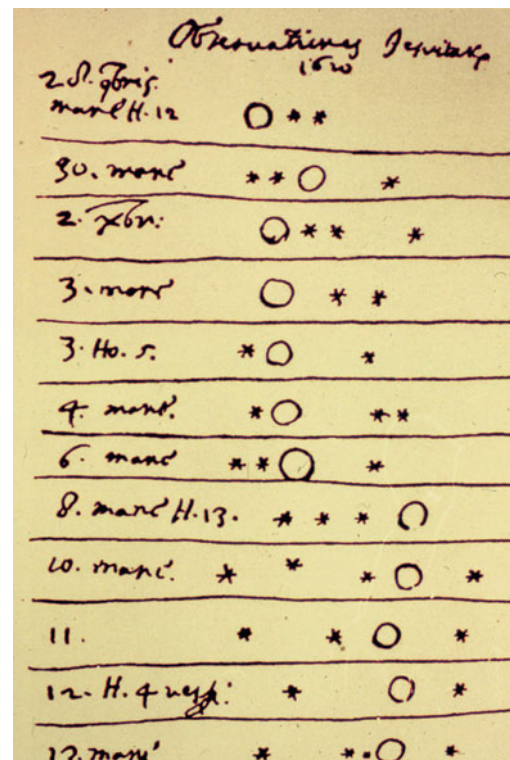 Observationes
1610
28. 9bris.
mane H. 12
30. mane
2. Xbr:
3. mane
3. Ho. 5.
4. mane.
6. mane
8. mane H. 13.
10. mane.
11.
12. H. 4 vesp:
mane